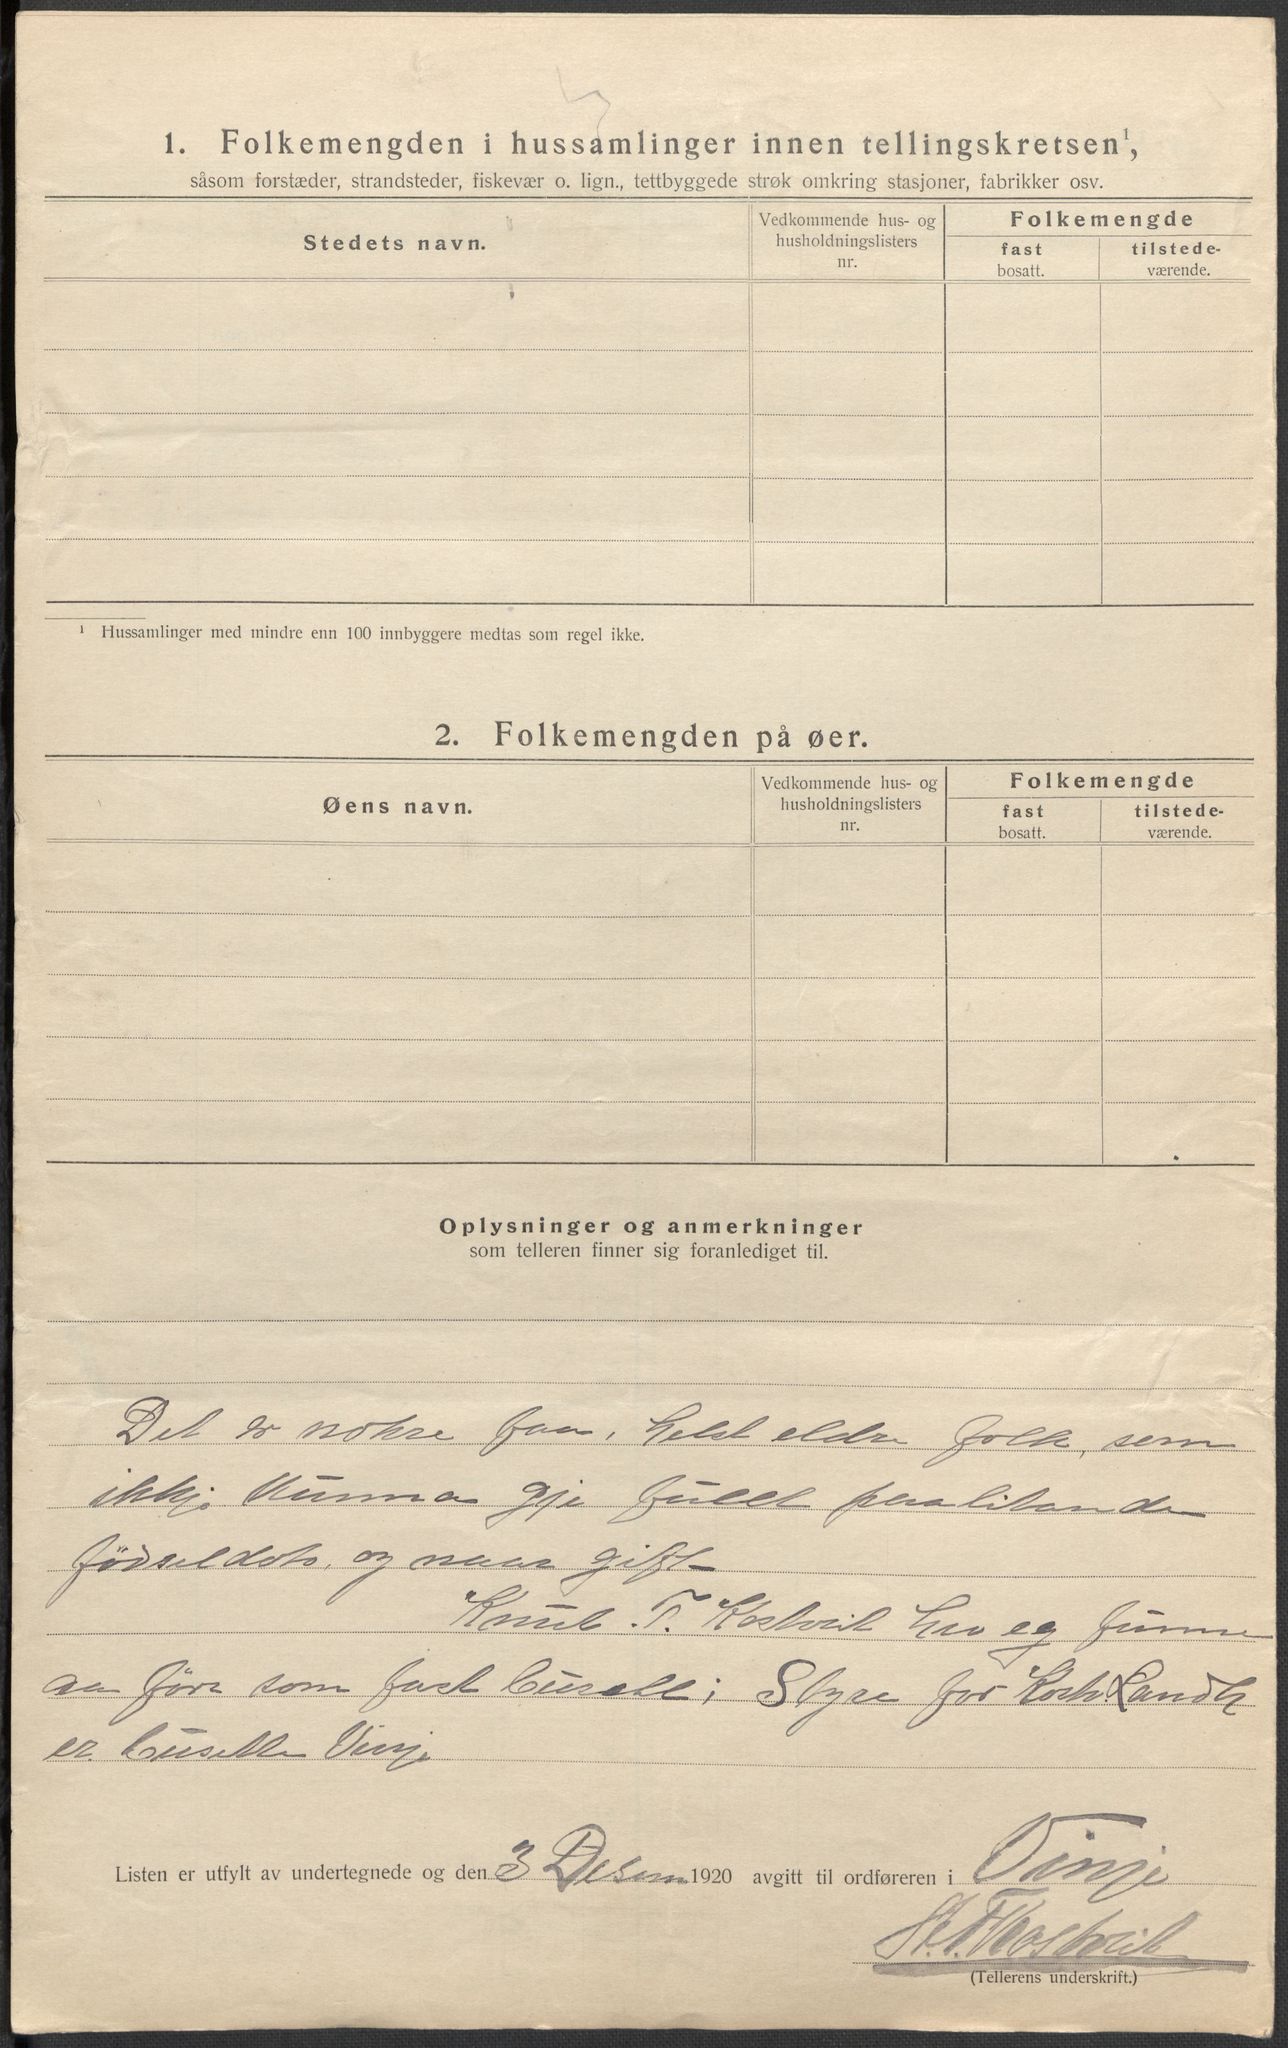 1. Folkemengden i hussamlinger innen tellingskretsen¹,
såsom forstæder, strandsteder, fiskevær o. lign., tettbyggede strøk omkring stasjoner, fabrikker osv.
Stedets navn.
Vedkommende hus- og
husholdningslisters
nr.
Folkemengde
fast
bosatt.
tilstede-
værende.
¹ Hussamlinger med mindre enn 100 innbyggere medtas som regel ikke.
2. Folkemengden på øer.
Øens navn.
Vedkommende hus- og
husholdningslisters
nr.
Folkemengde
fast
bosatt.
tilstede-
værende.
Oplysninger og anmerkninger
som telleren finner sig foranlediget til.
Det er nokre faa, helst eldre folk, som
ikkje kunna gje fullt paalitande
fødseldato, og naar gift
Knut T. Kostveit hev eg funne
aa føre som fast busett; Styre for
er busette Vinje
Listen er utfylt av undertegnede og den 3 Desem 1920 avgitt til ordføreren i Vinje
Kostveit
(Tellerens underskrift.)